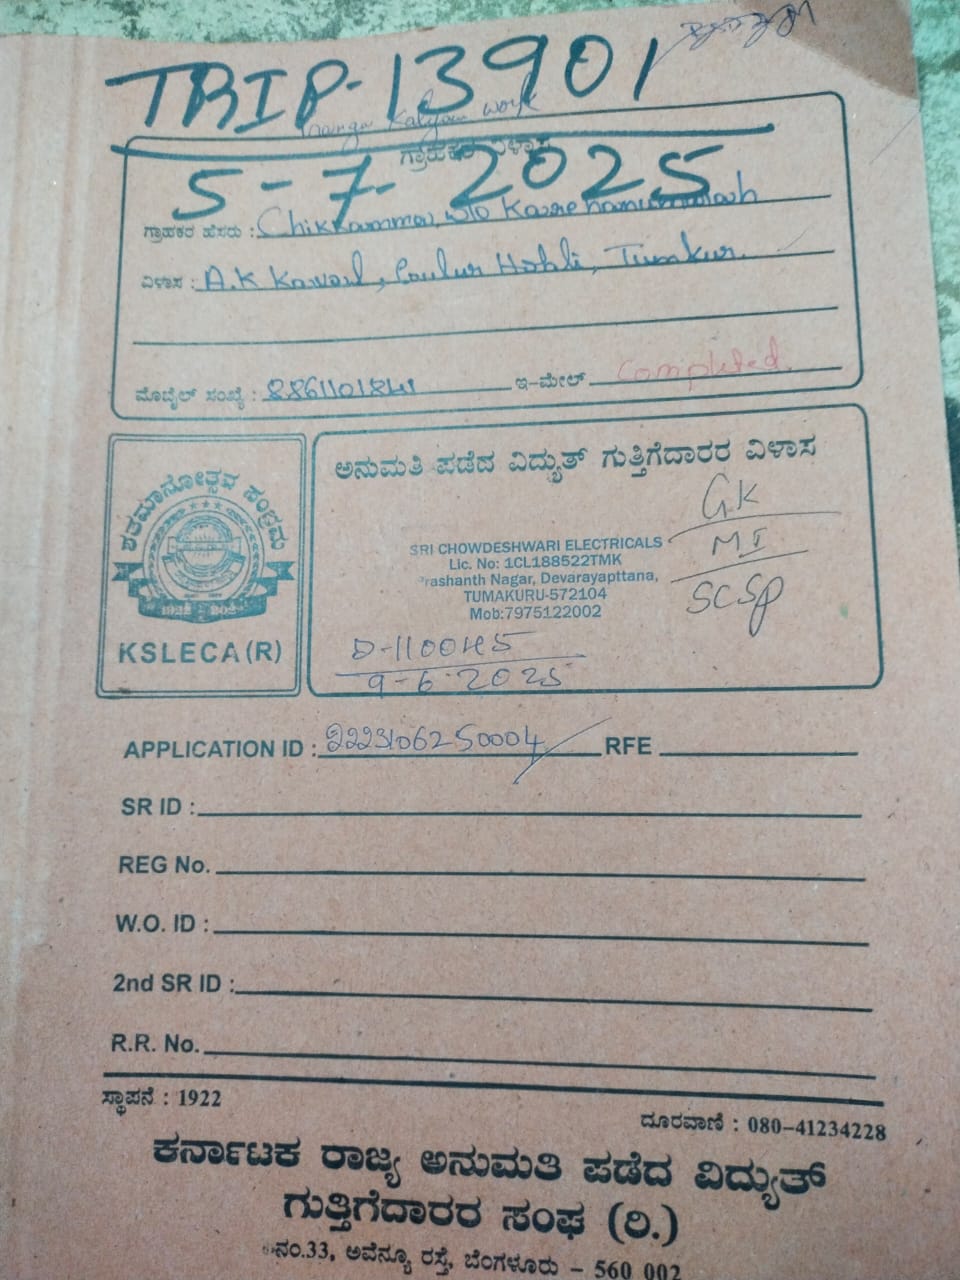 TRIP-13901
Ganga Kalyan work
ಗ್ರಾಹಕರ ವಿಳಾಸ
5-7-2025
ಗ್ರಾಹಕರ ಹೆಸರು : Chikkamma, w/o
ವಿಳಾಸ : A.K Kaval, Hobli, Tumkur.
ಮೊಬೈಲ್ ಸಂಖ್ಯೆ : ಇ-ಮೇಲ್ Completed
ಶತಮಾನೋತ್ಸವ ಸಂಭ್ರಮ
KSLECA (R)
ಅನುಮತಿ ಪಡೆದ ವಿದ್ಯುತ್ ಗುತ್ತಿಗೆದಾರರ ವಿಳಾಸ
GK
MI
SCSP
SRI CHOWDESHWARI ELECTRICALS
Lic. No: 1CL188522TMK
Prashanth Nagar, Devarayapttana,
TUMAKURU-572104
Mob:7975122002
D-110045
9-6-2025
APPLICATION ID : 2223106250004 RFE
SR ID :
REG No.
W.O. ID :
2nd SR ID :
R.R. No.
ಸ್ಥಾಪನೆ : 1922
ದೂರವಾಣಿ : 080-41234228
ಕರ್ನಾಟಕ ರಾಜ್ಯ ಅನುಮತಿ ಪಡೆದ ವಿದ್ಯುತ್
ಗುತ್ತಿಗೆದಾರರ ಸಂಘ (ರಿ.)
ನಂ.33, ಅವೆನ್ಯೂ ರಸ್ತೆ, ಬೆಂಗಳೂರು - 560 002